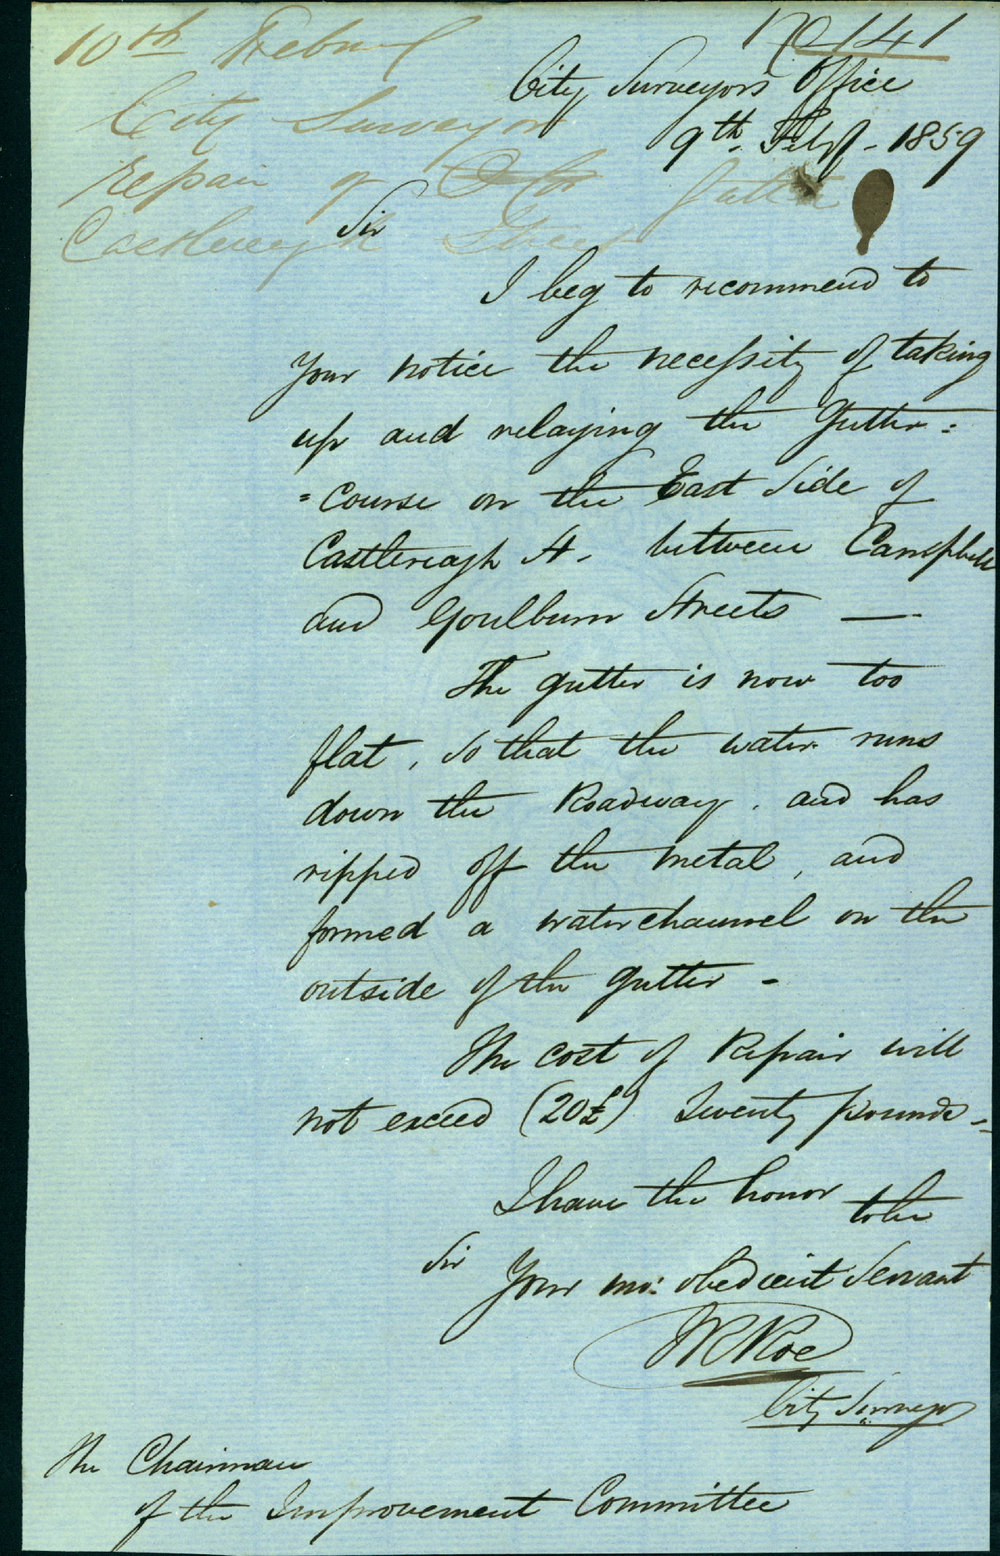 10th Februy
No 141
City Surveyor's Office
City Surveyor
9th Feby - 1859
repair of gutter
Castlereagh Street
Sir
I beg to recommend to
Your notice the necessity of taking
up and relaying the Gutter=
=Course on the East Side of
Castlereagh St. between Campbell
and Goulburn Streets —
The gutter is now too
flat, so that the water runs
down the Roadway. and has
ripped off the metal, and
formed a waterchannel on the
outside of the gutter -
The cost of Repair will
not exceed (20£) Twenty pounds -
I have the honor to be
Sir Your mo: obedient Servant
WRoe
City Surveyor
The Chairman
of the Improvement Committee